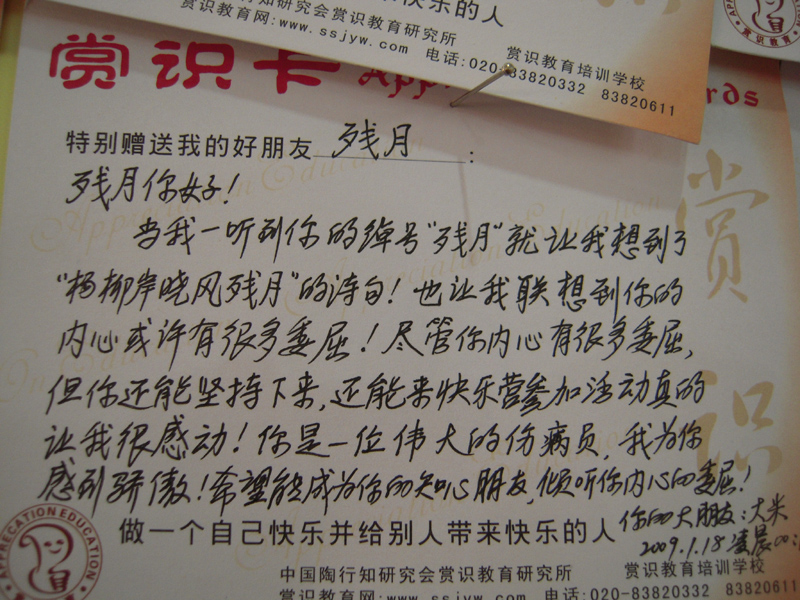 快乐的人
中国陶行知研究会赏识教育研究所
赏识教育培训学校
赏识教育网:www.ssjyw.com 电话:020-83820332 83820611
赏识教育
赏识卡 App rds
特别赠送我的好朋友 残月 :
残月你好!
当我一听到你的绰号"残月"就让我想到了
"杨柳岸晓风残月"的诗句!也让我联想到你的
内心或许有很多委屈!尽管你内心有很多委屈,
但你还能坚持下来,还能来快乐营参加活动真的
让我很感动!你是一位伟大的伤病员,我为你
感到骄傲!希望能成为你的知心朋友,倾听你内心的委屈!
赏识
做一个自己快乐并给别人带来快乐的人
你的大朋友:大米
2009.1.18凌晨00:
APPRECIATION EDUCATION
中国陶行知研究会赏识教育研究所 赏识教育培训学校
赏识教育网:www.ssjyw.com 电话:020-83820332 8382061